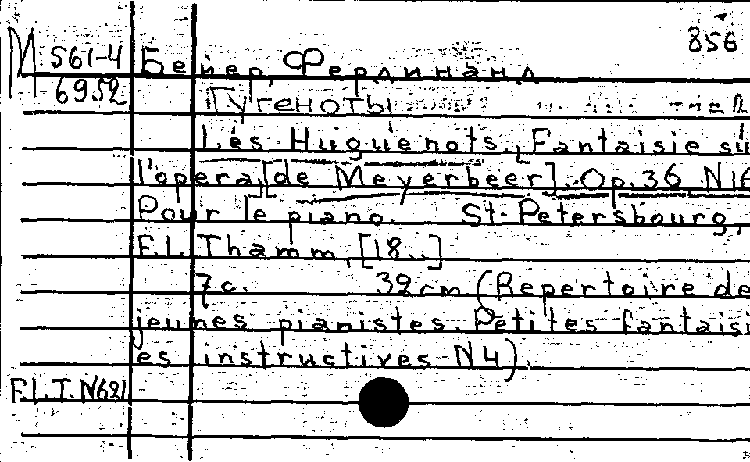 856
М 561-4
6952
Бейер, Фердинанд
Гугеноты
Les Huguenots. Fantaisie su
l'opera [de Meyerbeer]. Op. 36 N16
Pour le piano. St-Petersbourg,
F.I. Thamm, [18..]
7 c. 32 cm (Repertoire de
jeunes pianistes. Petites fantaisi
es instructives N4).
F.I.T. N621